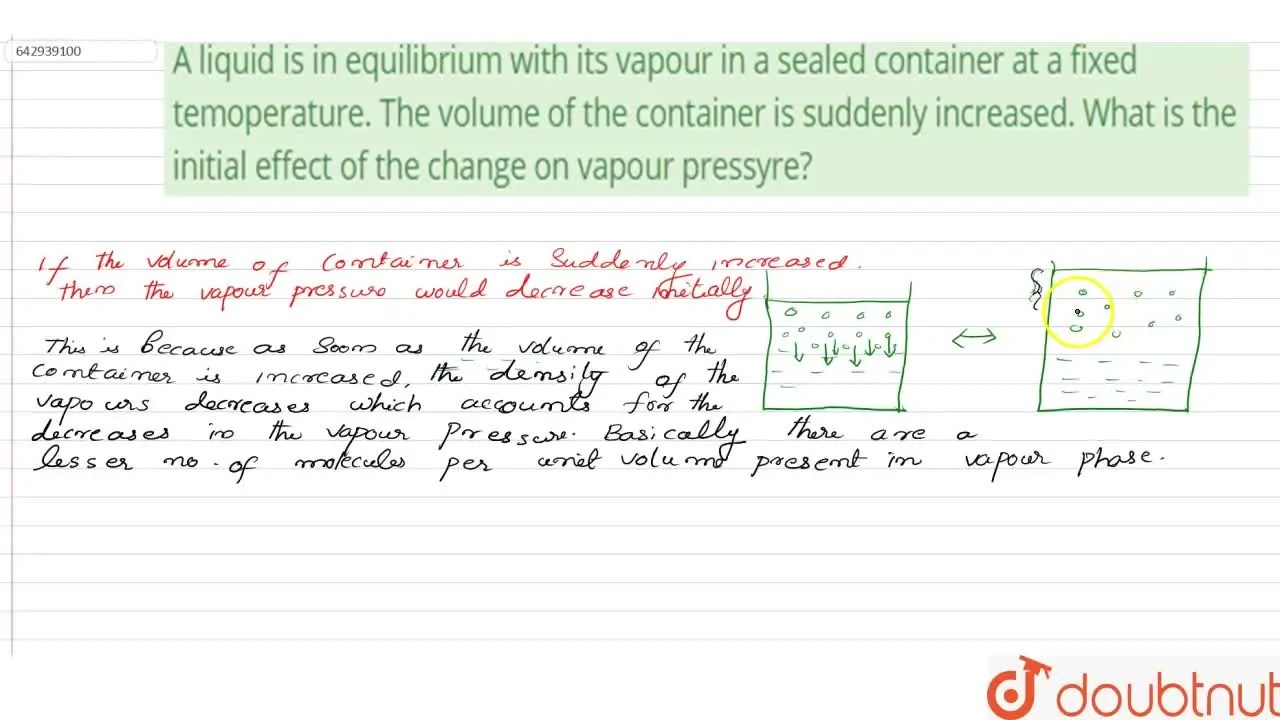 642939100
A liquid is in equilibrium with its vapour in a sealed container at a fixed
temoperature. The volume of the container is suddenly increased. What is the
initial effect of the change on vapour pressyre?
If the volume of container is Suddenly increased.
then the vapour pressur would decrease initially
This is Because as Soon as the volume of the
container is increased, the density of the
vapours decreases which accounts for the
decreases in the vapour Pressure. Basically there are a
lesser no. of molecules per unit volume present in vapour phase.
doubtnut